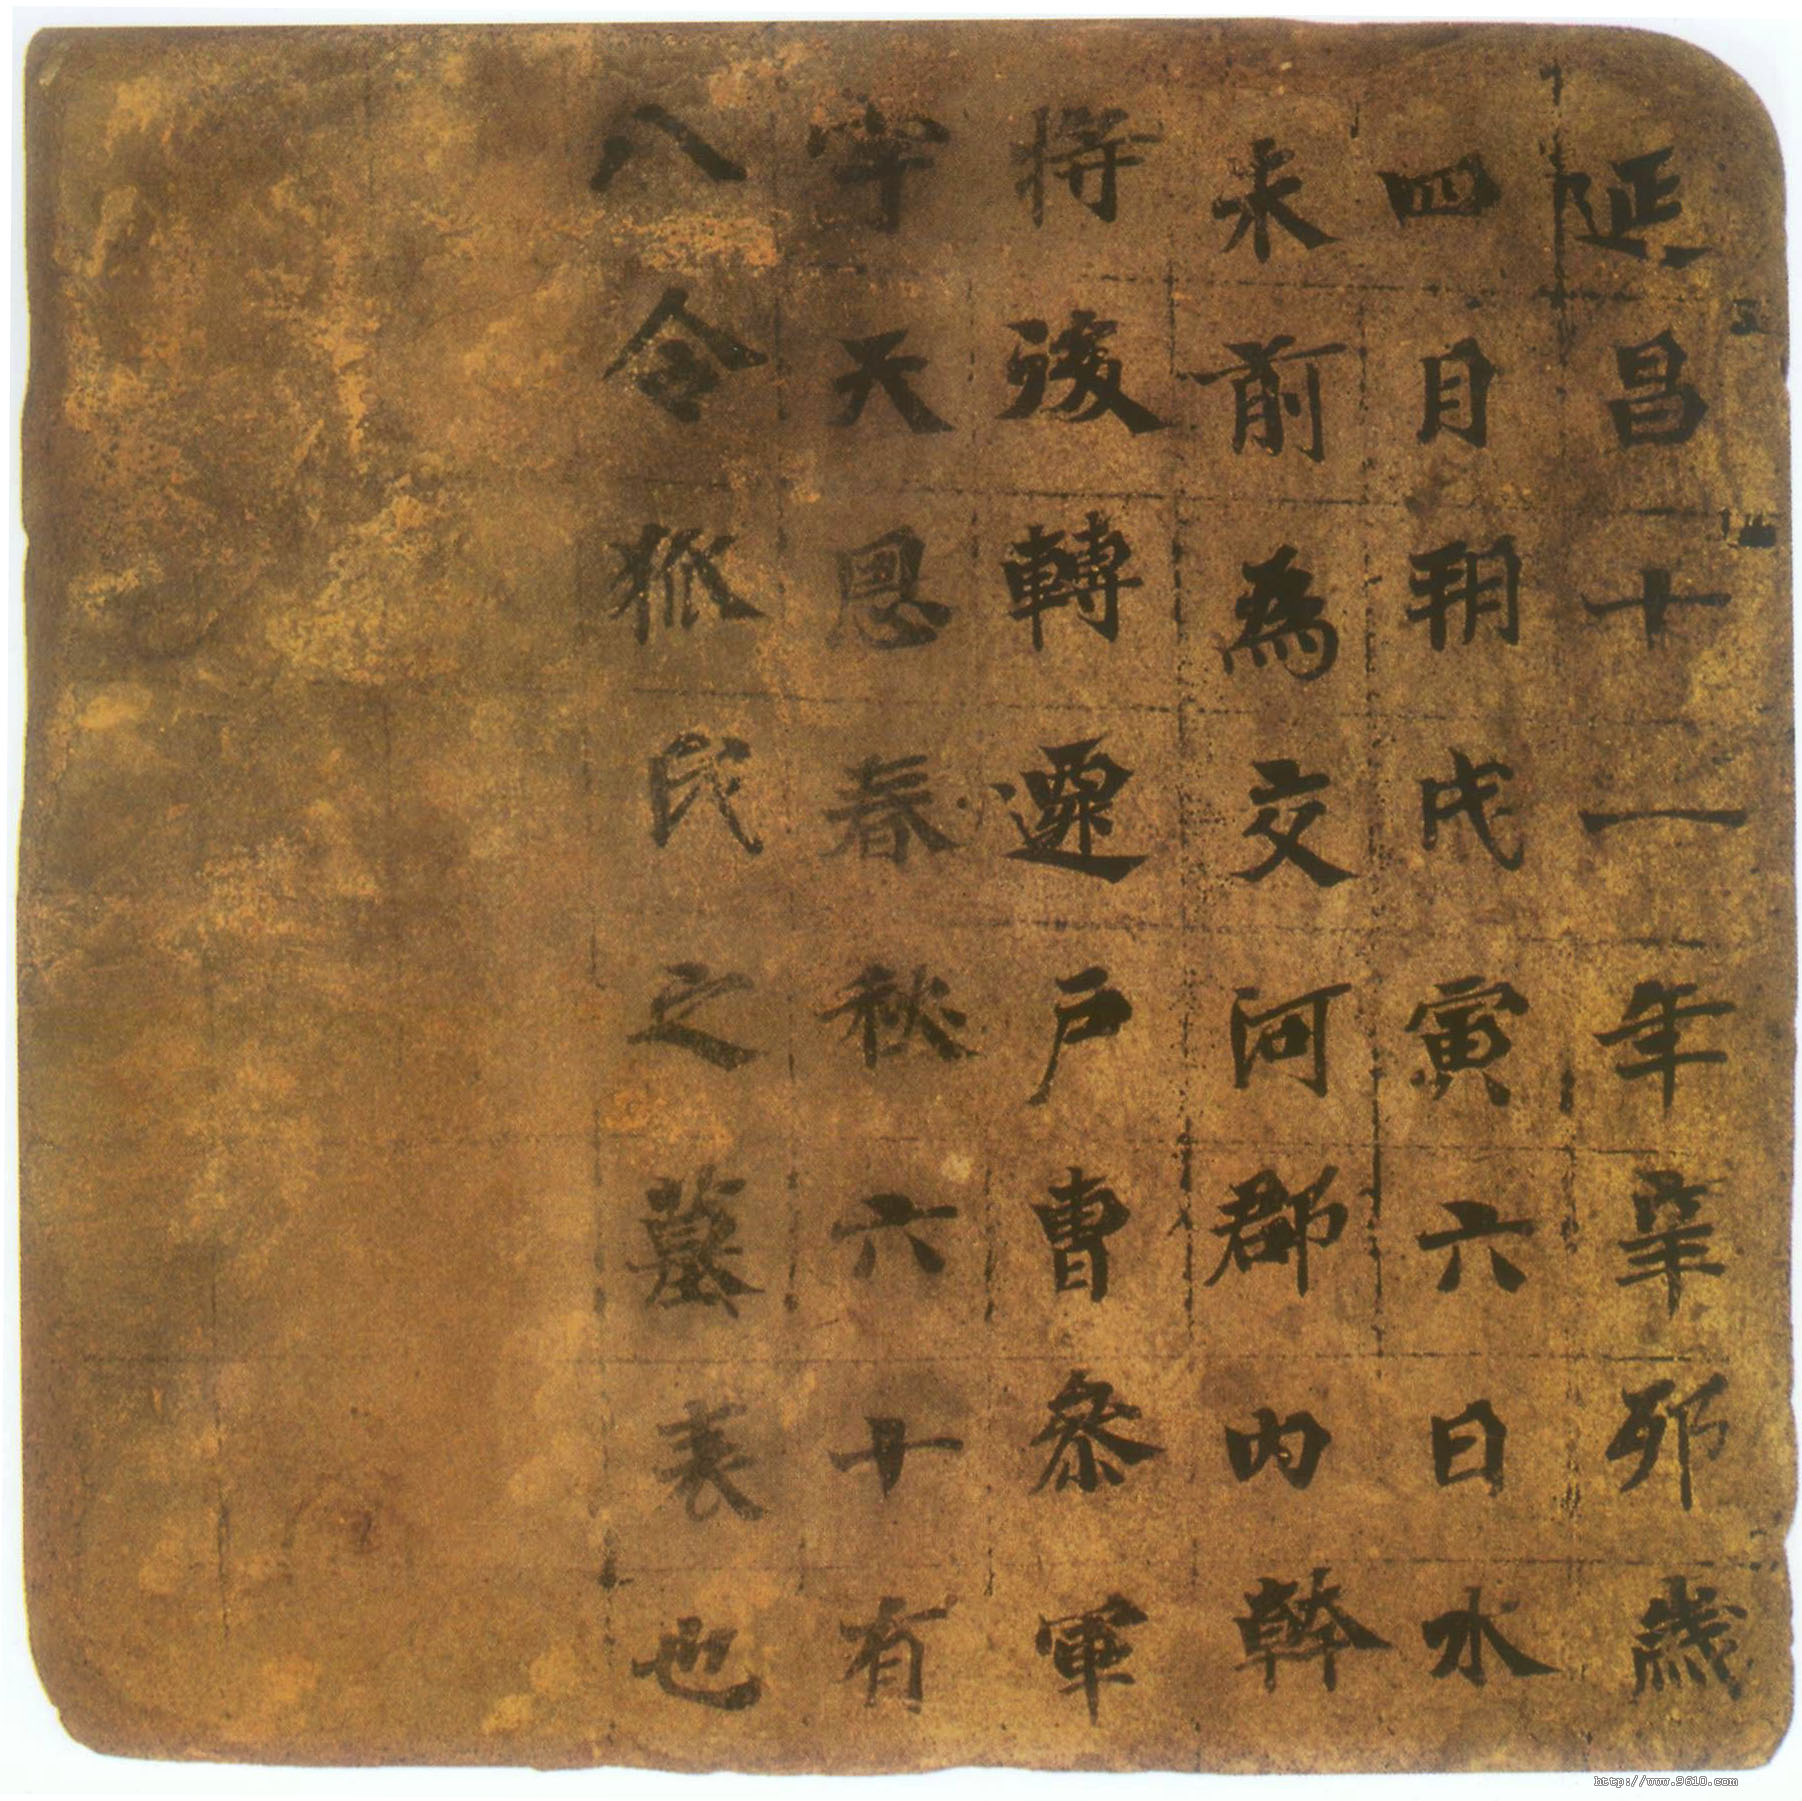 延昌十一年辛卯歲
四月朔戊寅六日水
未前為交河郡內幹
將後轉遷戶曹參軍
字天恩春秋六十有
八令狐氏之墓表也
http://www.9610.com